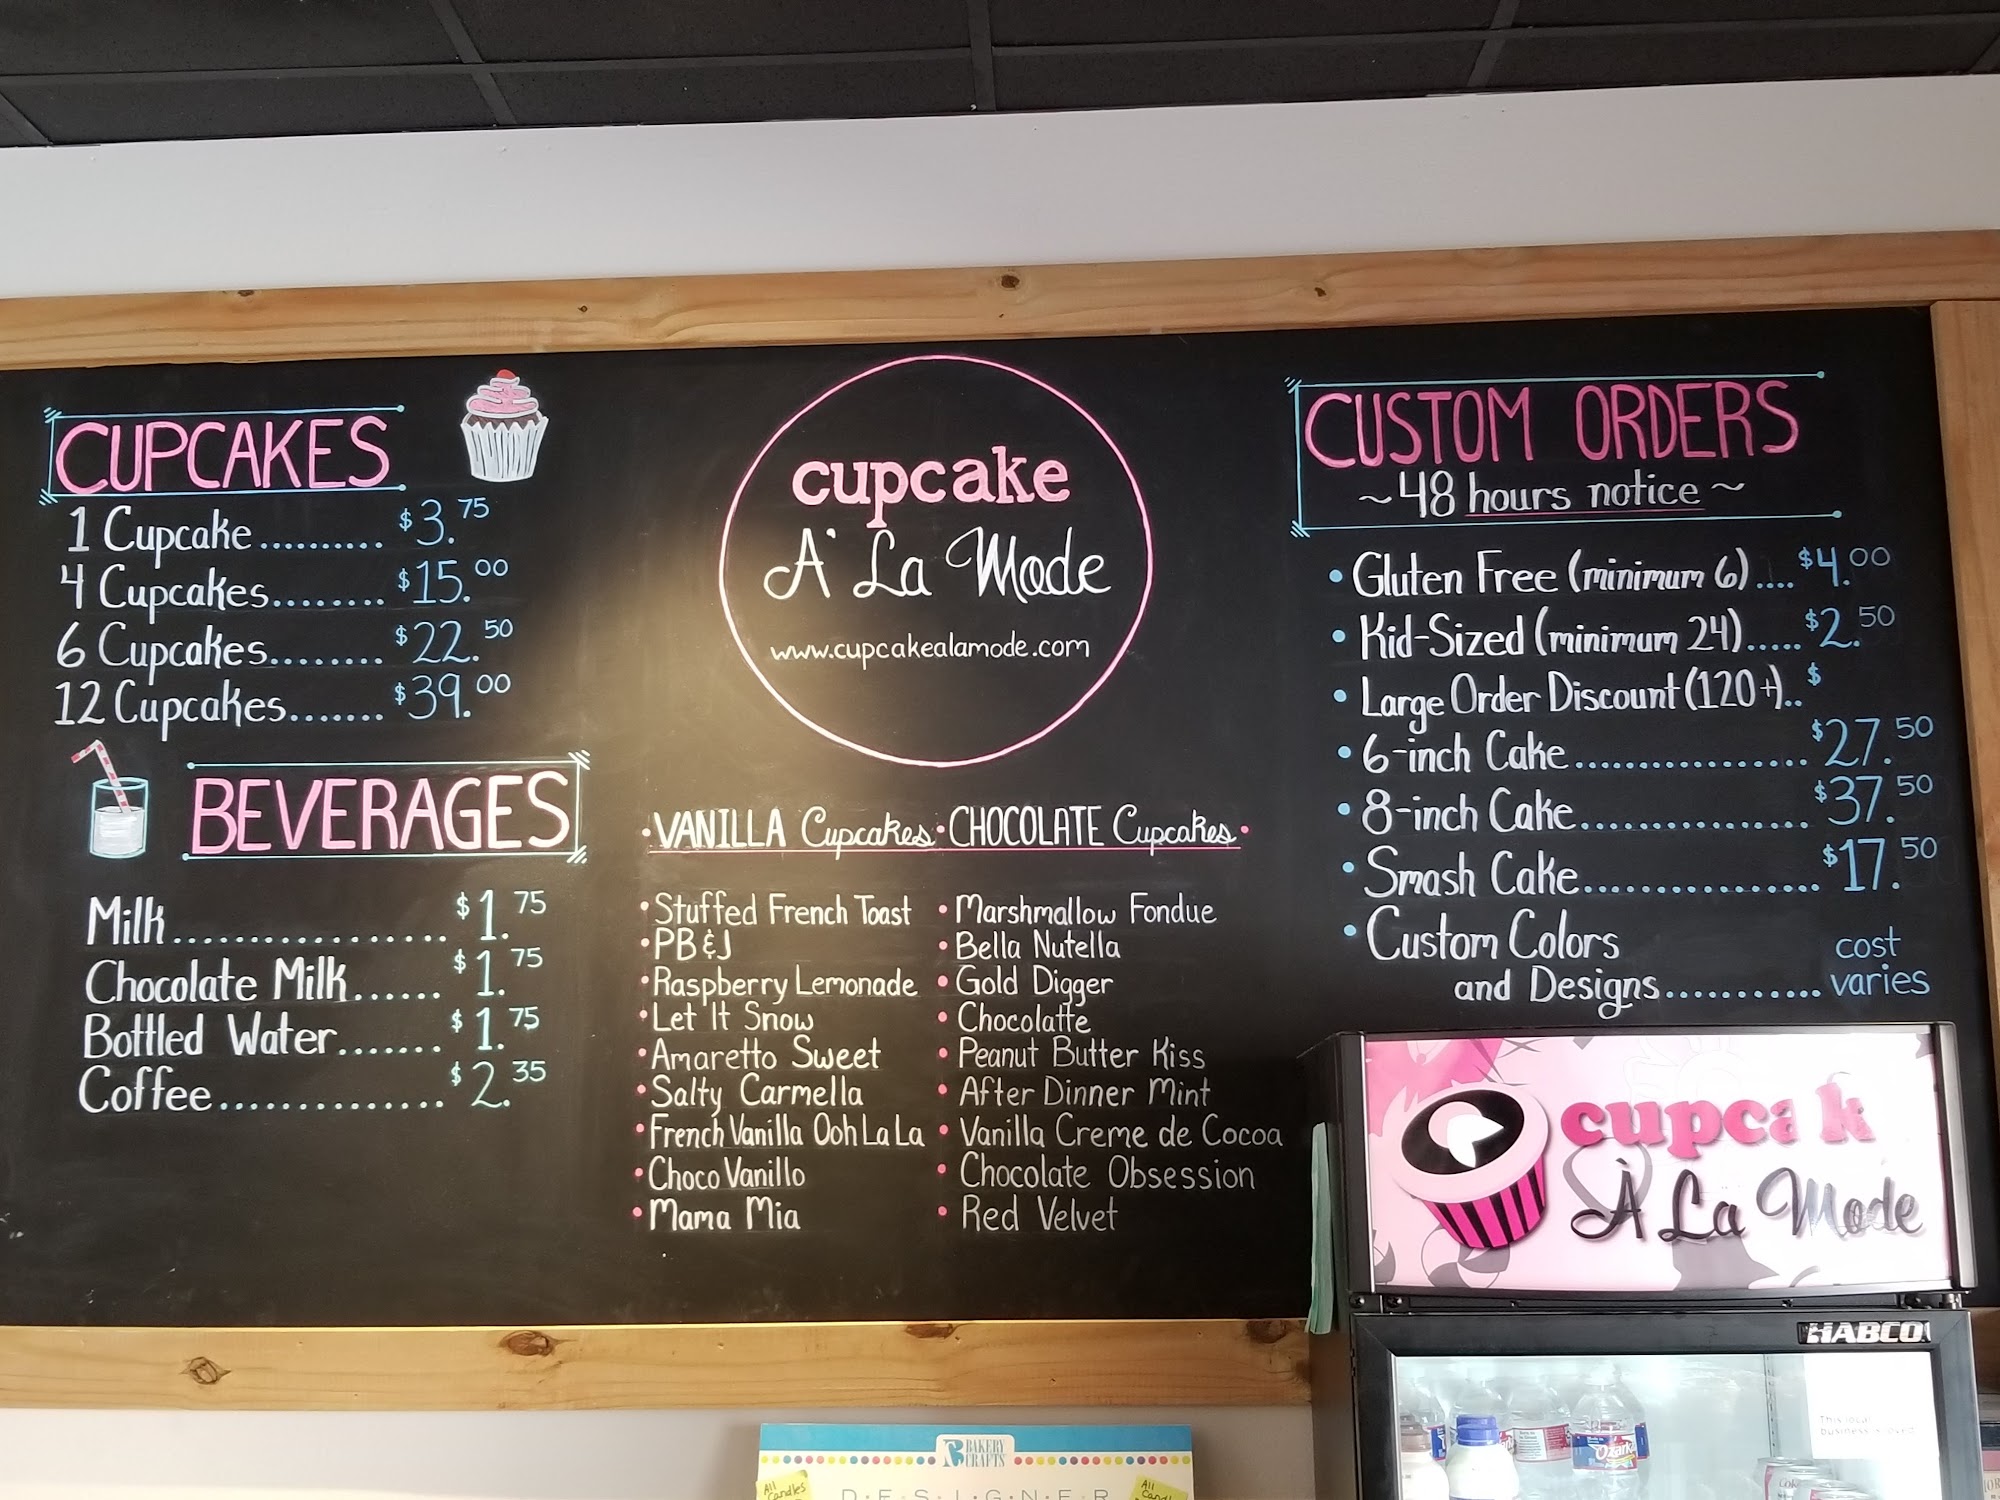 CUPCAKES
1 Cupcake.......... $3.75
4 Cupcakes........ $15.00
6 Cupcakes........ $22.50
12 Cupcakes....... $39.00
BEVERAGES
Milk.................. $1.75
Chocolate Milk...... $1.75
Bottled Water....... $1.75
Coffee............... $2.35
cupcake
À La Mode
www.cupcakealamode.com
•VANILLA Cupcakes•CHOCOLATE Cupcakes•
•Stuffed French Toast
•PB&J
•Raspberry Lemonade
•Let It Snow
•Amaretto Sweet
•Salty Carmella
•French Vanilla Ooh La La
•Choco Vanillo
•Mama Mia
•Marshmallow Fondue
•Bella Nutella
•Gold Digger
•Chocolatte
•Peanut Butter Kiss
•After Dinner Mint
•Vanilla Creme de Cocoa
•Chocolate Obsession
•Red Velvet
CUSTOM ORDERS
~48 hours notice~
•Gluten Free (minimum 6).... $4.00
•Kid-Sized (minimum 24)..... $2.50
•Large Order Discount (120+).. $
•6-inch Cake.................. $27.50
•8-inch Cake................. $37.50
•Smash Cake.................. $17.50
•Custom Colors
and Designs............ cost varies
cupcak
À La Mode
HABCO
This local
business is loved
Ozarka
BAKERY
CRAFTS
All
Candles
DESIGNER
All